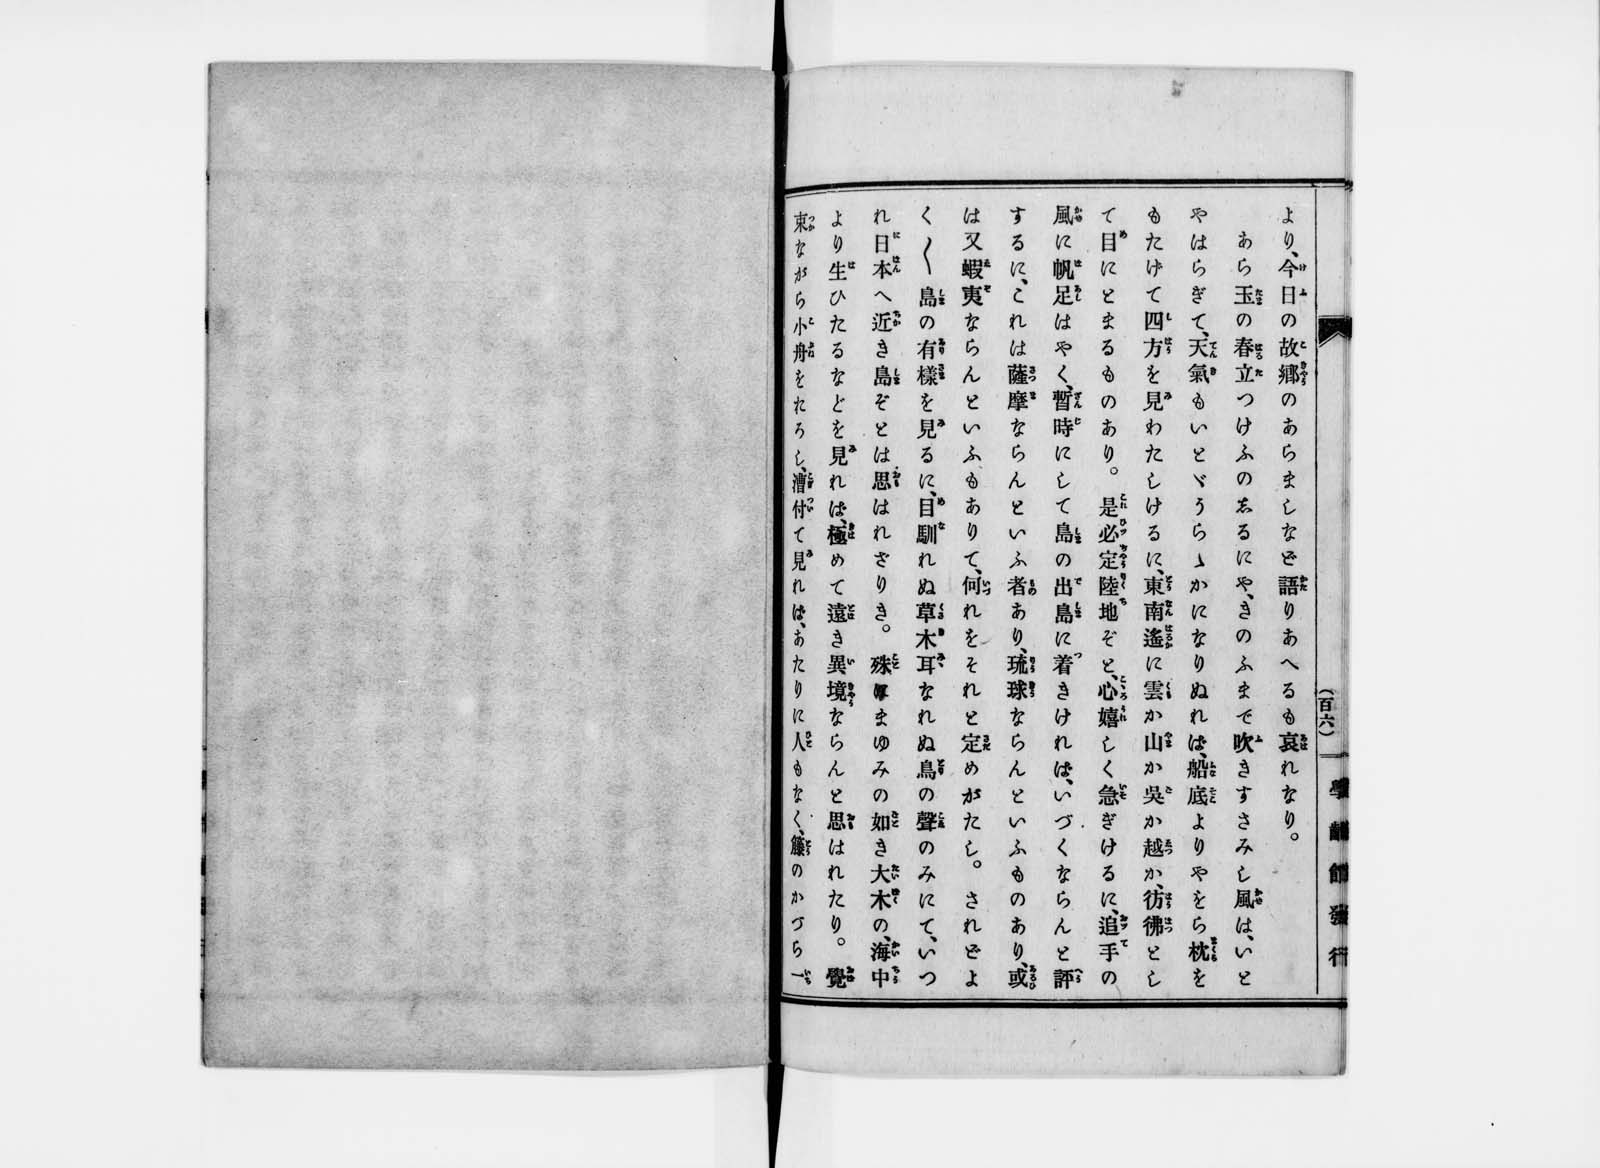 より、今日の故鄕のあらましなど語りあへるも哀れなり。
あら玉の春立つけふのゑるにや、きのふまで吹きすさみし風は、いと
やはらぎて、天氣もいとゞうらゝかになりぬれば、船底よりやをら枕を
もたげて四方を見わたしけるに、東南遙に雲か山か吳か越か、彷彿とし
て目にとまるものあり。是必定陸地ぞと、心嬉しく急ぎけるに、追手の
風に帆足はやく、暫時にして島の出島に着きければ、いづくならんと評
するに、これは薩摩ならんといふ者あり、琉球ならんといふものあり、或
は又蝦夷ならんといふもありて、何れをそれと定めがたし。されどよ
く〳〵島の有樣を見るに、目馴れぬ草木耳なれぬ鳥の聲のみにて、いつ
れ日本へ近き島ぞとは思はれざりき。殊にまゆみの如き大木の、海中
より生ひたるなどを見れば、極めて遠き異境ならんと思はれたり。覺
束ながら小舟をれろし、漕付て見れば、あたりに人もなく、籐のかづら一
(百六)
學齡館發行